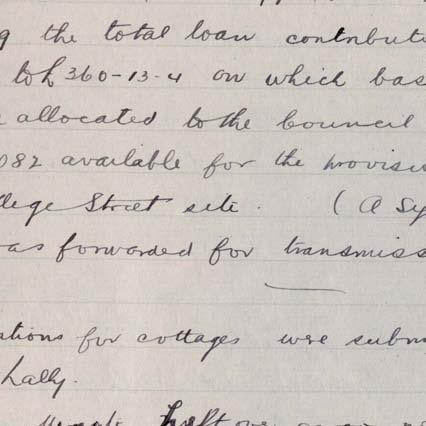 g the total loan contributi
to £360-13-4 on which bas
allocated to the Council
082 available for the provisi
llege Street site. (A Sy
as forwarded for transmiss
ations for cottages were subm
Lally.